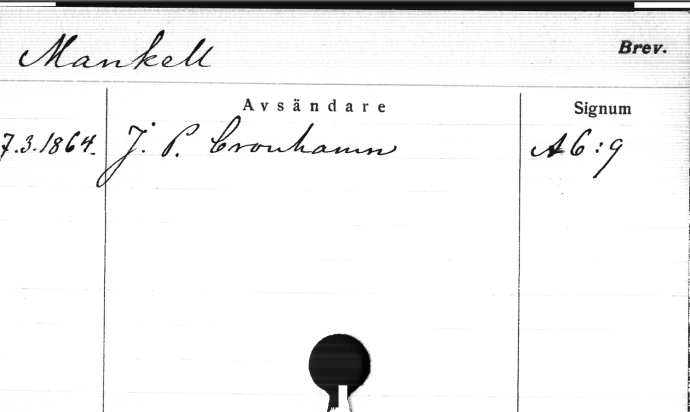 Mankell
Brev.
Avsändare
Signum
7.3.1864. J. P. Cronhamn A6:9